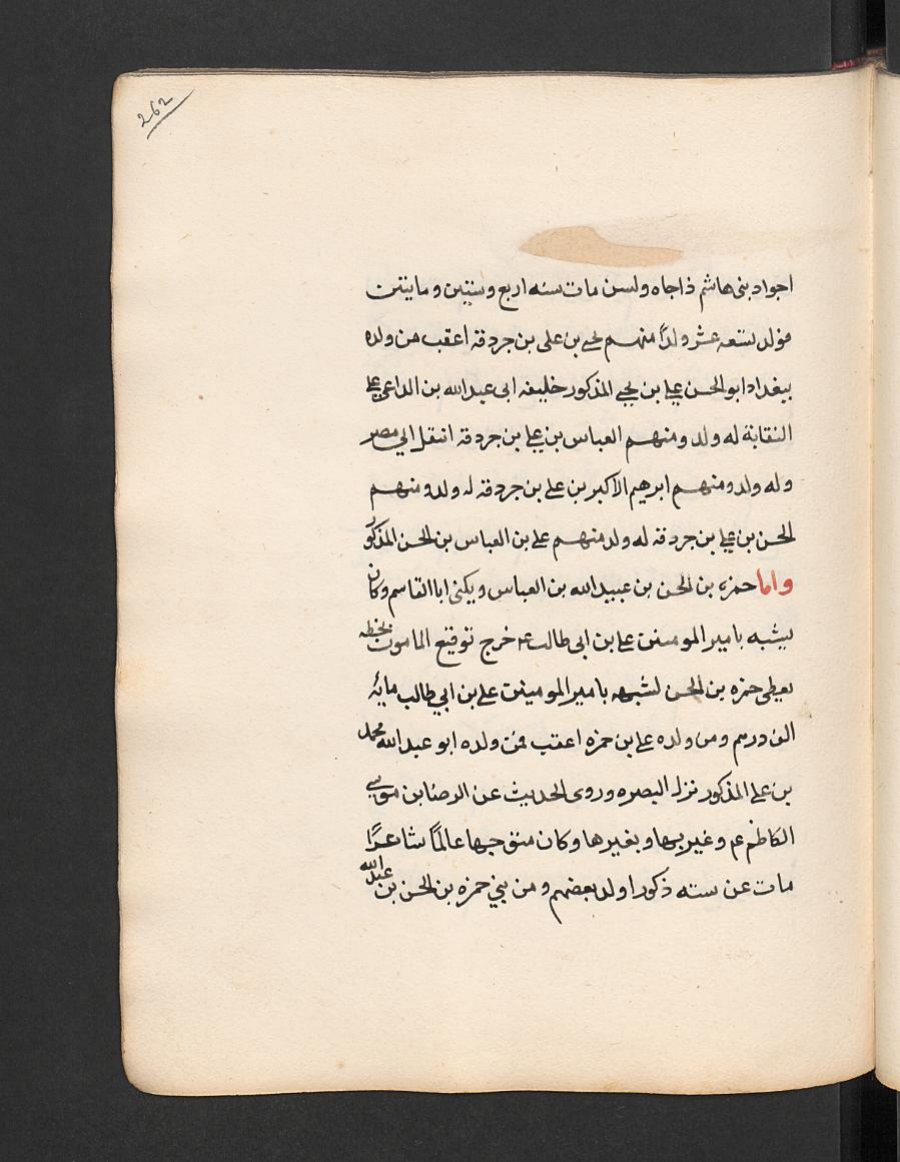 ٢٦٢
اجواد بنى هاشم ذا جاه ولسن مات سنه اربع وستين ومايتين
فولد تسعه عشر ولدًا منهم يحيى بن على بن جردقه اعقب من ولده
ببغداد ابو الحسن على بن يحيى المذكور خليفه ابى عبدالله بن الداعى على
النقابة له ولد ومنهم العباس بن على بن جردقه انتقل الى مصر
وله ولد ومنهم ابرهيم الاكبر بن على بن جردقه له ولد ومنهم
الحسن بن على بن جردقه له ولد منهم على بن العباس بن الحسن المذكور
واما حمزه بن الحسن بن عبيدالله بن العباس ويكنى ابا القاسم وكان
يشبه بامير المومنين على بن ابى طالب ع خرج توقيع المامون بخطه
يعطى حمزه بن الحسن لشبهه بامير المومينين على بن ابي طالب مايه
الف درهم ومن ولده على بن حمزه اعقب فمن ولده ابو عبدالله محمد
بن على المذكور نزل البصره وروى الحديث عن الرضا بن موسى
الكاظم عم وغير بها وبغيرها وكان متوجها عالمًا شاعرًا
مات عن سته ذكور اولد بعضهم ومن بني حمزه بن الحسن بن عبدالله